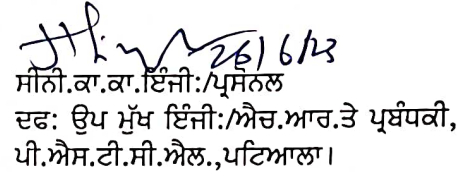 26/6/23
ਸੀਨੀ.ਕਾ.ਕਾ.ਇੰਜੀ:/ਪ੍ਰਸੋਨਲ
ਦਫ: ਉਪ ਮੁੱਖ ਇੰਜੀ:/ਐਚ.ਆਰ.ਤੇ ਪ੍ਰਬੰਧਕੀ,
ਪੀ.ਐਸ.ਟੀ.ਸੀ.ਐਲ.,ਪਟਿਆਲਾ।